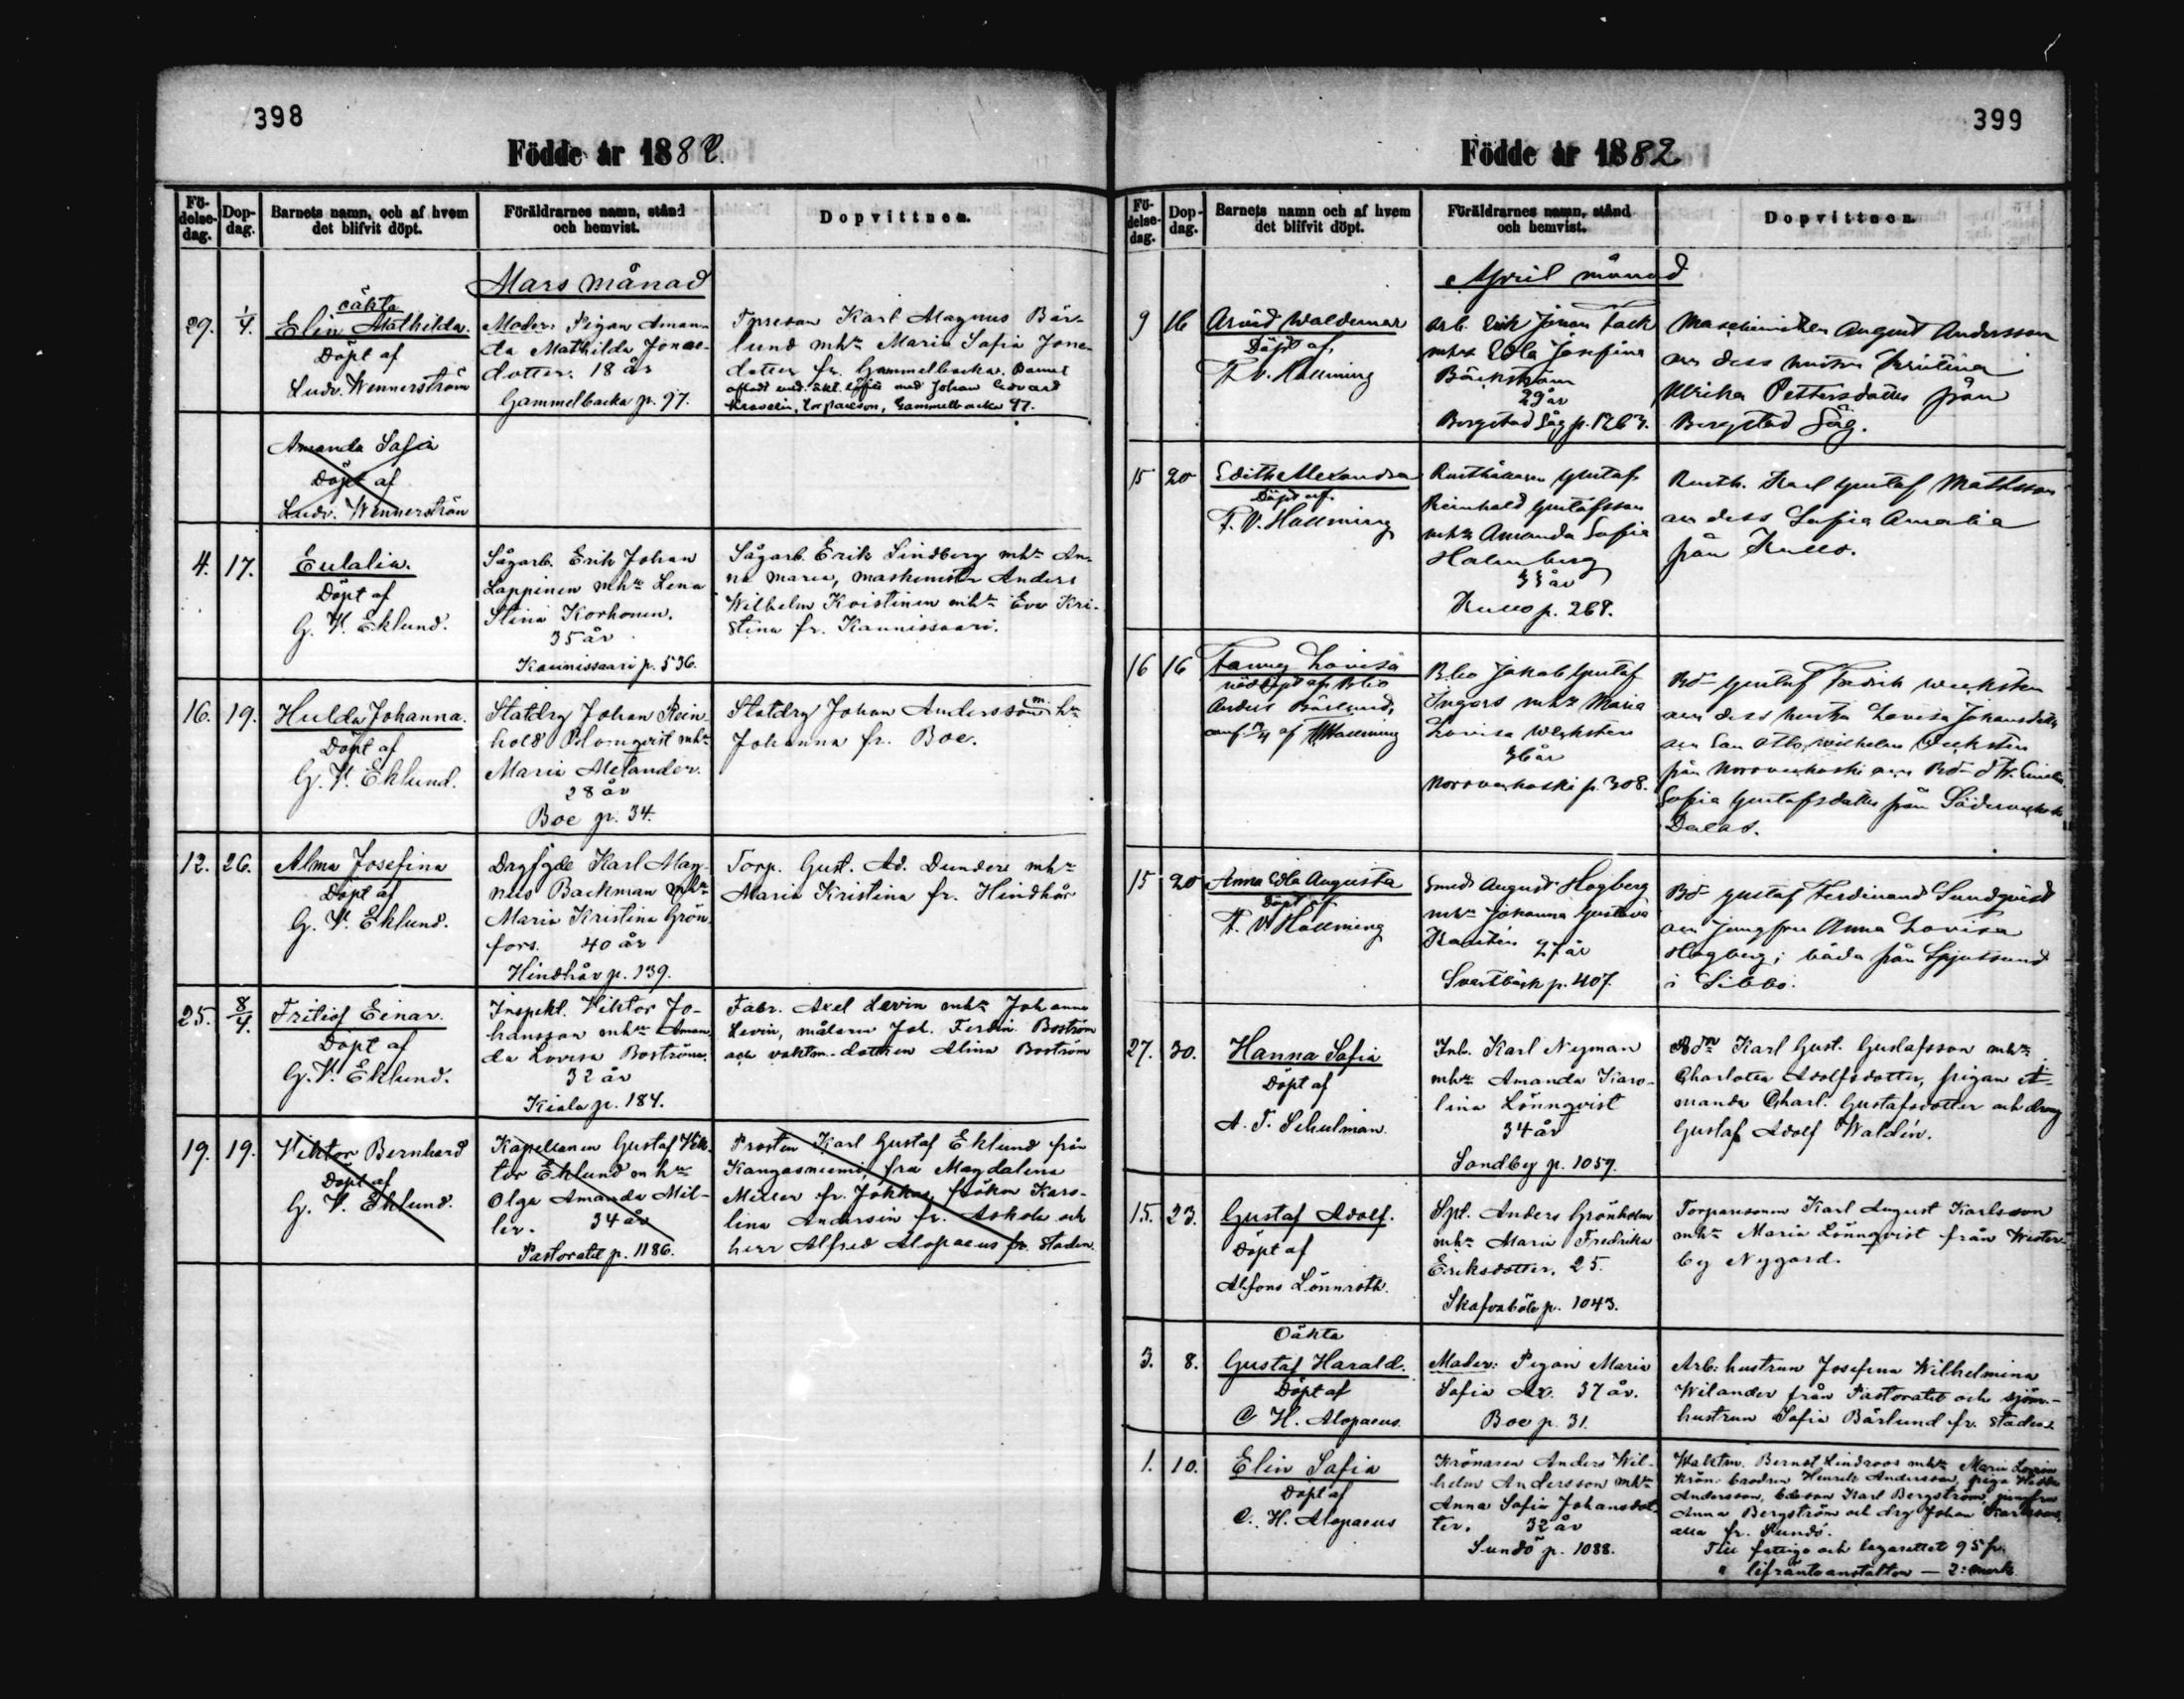 398
Födde år 1882.
Fö-
delse-
dag.
Dop-
dag.
Barnets namn, och af hvem
det blifvit döpt.
Föräldrarnes namn, stånd
och hemvist.
Dopvittnen.
Mars månad
29.
1/4.
oäkta
Elin Mathilda.
Döpt af
Ludv. Wennerström
Moder: Pigan Aman-
da Mathilda Jonas-
dotter. 18 år
Gammelbacka p. 97.
Karl Magnus Bär-
lund mhu Maria Sofia Jons-
dotter fr. Gammelbacka. Barnet
med Johan Edvard
Gammelbacka 97.
Amanda Sofia
Döpt af
Ludv. Wennerström
4.
17.
Eulalia.
Döpt af
G. V. Eklund.
Sågarb. Erik Johan
Lappinen mhu Lena
Stina Korhonen.
35 år
Kaunissaari p. 536.
Sågarb. Erik Lindberg mhu An-
na Maria, maskinister Anders
Wilhelm Koistinen mhu Eva Kri-
stina fr. Kaunissaari.
16.
19.
Hulda Johanna.
Döpt af
G. V. Eklund.
Statdrg Johan Rein-
hold Blomqvist mhu
Maria Melander.
28 år
Boe p. 34.
Statdrg Johan Andersson m. hu
Johanna fr. Boe.
12.
26.
Alma Josefina
Döpt af
G. V. Eklund.
Karl Mag-
nus Backman mhu
Maria Kristina Grön-
fors. 40 år
Hindhår p. 139.
Torp. Gust. Ad. Dunder mhu
Maria Kristina fr. Hindhår
25.
8/4.
Fritiof Einar.
Döpt af
G. V. Eklund.
Inspekt. Viktor Jo-
hansson mhu Aman-
da Lovisa Boström.
32 år
Kiala p. 184.
Fabr. Axel Levin mhu Johanna
Levin, målaren Joh. Ferdin. Boström
och vaktm.-dottren Alina Boström
19.
19.
Viktor Bernhard
Döpt af
G. V. Eklund.
Kapellanen Gustaf Vik-
tor Eklund m hu
Olga Amanda Mil-
ler. 34 år
Pastoratet p. 1186.
Prosten Karl Gustaf Eklund från
Kangasniemi, fru Magdalena
Miller fr. Jokkas, fröken Karo-
lina Andersin fr. Askola och
herr Alfred Alopaeus fr. staden.
399
Födde år 1882
Fö-
delse-
dag.
Dop-
dag.
Barnets namn och af hvem
det blifvit döpt.
Föräldrarnes namn, stånd
och hemvist.
Dopvittnen.
April månad
9
16
Arvid Waldemar
Döpt af
F. V. Hallming
Arb. Erik Johan Fack
mhu Edla Josefina
Bäckström
29 år
Borgstad Såg p. 1263.
Maschinisten August Andersson
och dess hustru Kristina
Ulrika Pettersdotter från
Borgstad Såg.
15
20
Edith Alexandra
Döpt af
F. V. Hallming
Rusthållaren Gustaf
Reinhold Gustafsson
mhu Amanda Sofia
Holmberg
33 år
Kullo p. 268.
Rusth. Karl Gustaf Mattsson
och dess Sofia Amalia
från Kullo.
16
16
Fanny Lovisa
nöddöpt af Bbo
Anders Bärlund,
af F. V. Hallming
Bbo Jakob Gustaf
Ingers mhu Maria
Lovisa Weckstén
36 år
Norrveckoski p. 308.
Bd- Gustaf Fredrik Weckstén
och dess hustru Lovisa Johansdotter
och Son Otto Wilhelm Weckstén
från Norrveckoski och Bd- dtr. Emilia
Sofia Gustafsdotter från Söderveckoski
15
20
Anna Edla Augusta
Döpt af
F. V. Hallming
Smed August Hogberg
mhu Johanna Gustava
27 år
Svartbäck p. 407.
Bd- Gustaf Ferdinand Sundqvist
och jungfru Anna Lovisa
Hogberg; båda från Spjutsund
i Sibbo.
27.
30.
Hanna Sofia
Döpt af
A. T. Schulman.
Inh. Karl Nyman
mhu Amanda Karo-
lina Lönnqvist
34 år
Sondby p. 1059.
Bdn Karl Gust. Gustafsson mhu
Charlotta Adolfsdotter, pigan A-
manda Charl. Gustafsdotter och dreng
Gustaf Adolf Waldén.
15.
23.
Gustaf Adolf.
Döpt af
Alfons Lönnroth.
Spt. Anders Grönholm
mhu Maria Fredrika
Eriksdotter. 25.
Skafvaböle p. 1043.
Torparsonen Karl August Karlsson
mhu Maria Lönnqvist från Wester-
by Nygård.
3.
8.
Oäkta
Gustaf Harald.
Döpt af
C. H. Alopaeus.
Moder: Pigan Maria
Sofia Ax. 37 år.
Boe p. 31.
Arb: hustrun Josefina Wilhelmina
Wilander från Pastoratet och sjöm.-
hustrun Sofia Bärlund fr. staden.
1.
10.
Elin Sofia
Döpt af
C. H. Alopaeus
Krönaren Anders Wil-
helm Andersson mhu
Anna Sofia Johansdot-
ter. 32 år
Sundö p. 1088.
Waktm. Bernst Lindroos mhu Maria Lovisa
Krön: brodren Henrik Andersson, piga Hilda
Andersson, Karl Bergström, jungfru
Anna Bergström och drg Johan Karlsson,
alla fr. Sundö.
Till fattiga och lazarettet 95 p.
" lifränteanstalten — 2: mark.